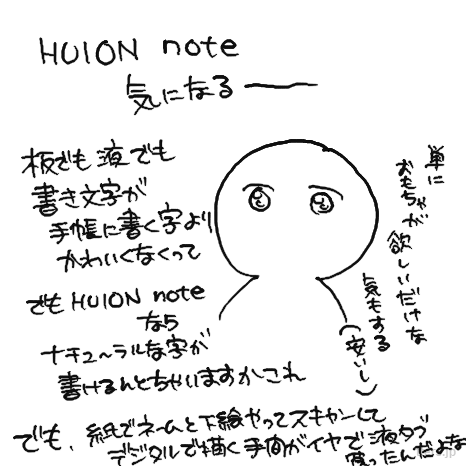 HUION note
気になる——
板でも液でも
書き文字が
手帳に書く字より
かわいくなくって
でもHUION note
なら
ナチュ〜ラルな字が
書けるんとちゃいますかこれ
単に
おもちゃが
欲しいだけな
気もする
(安いし)
でも、紙でネームと下絵やってスキャンして
デジタルで描く手間がイヤで液タブ
使ったんだよな